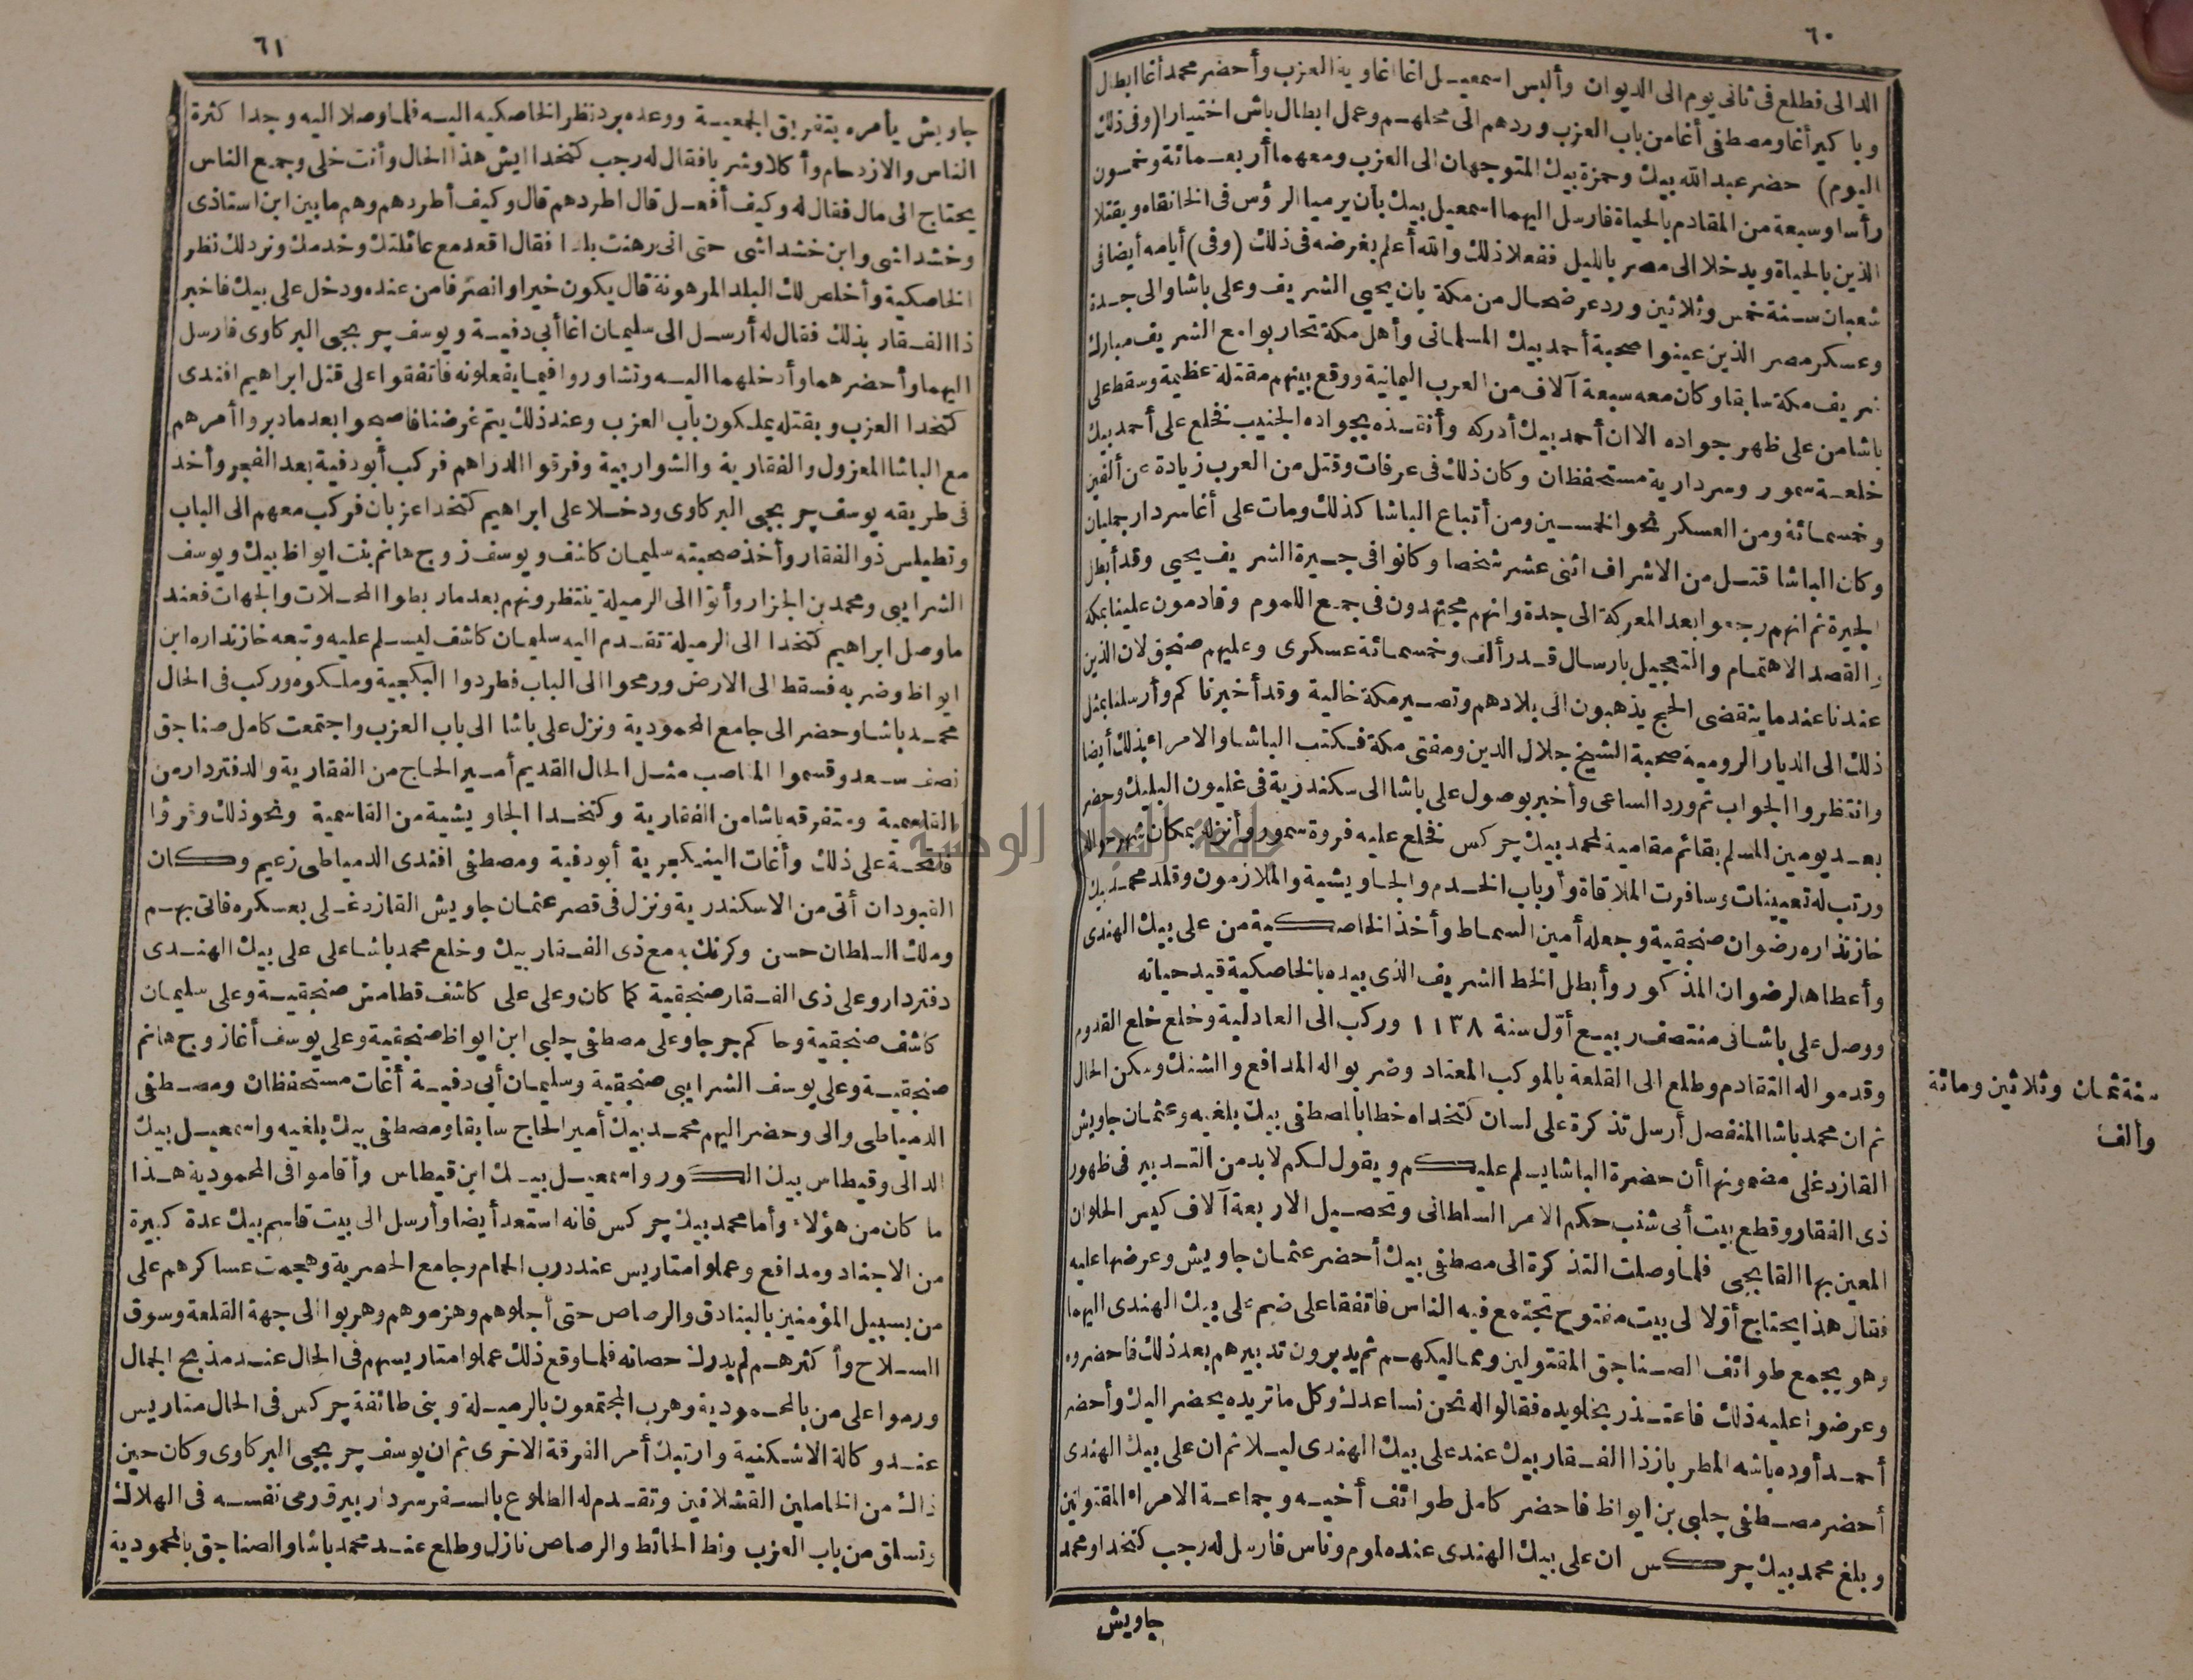 ٦٠
الدالى فطلع فى ثانى يوم الى الديوان وألبس اسمعيل اغا اغاوية العزب وأحضر محمد أغا ابطال
وباكير أغا ومصطفى أغا من باب العزب وردهم الى محلهم وعمل ابطال باش اختيارا (وفى ذلك
اليوم) حضر عبد الله بيك وحمزة بيك المتوجهان الى العزب ومعهما أربعمائة وخمسون
رأسا وسبعة من المقادم بالحياة فارسل اليهما اسمعيل بيك بأن يرميا الرؤس فى الخانقاه ويقتلا
الذين بالحياة ويدخلا الى مصر بالليل ففعلا ذلك والله أعلم بغرضه فى ذلك (وفى) أيامه أيضا فى
شعبان سنة خمس وثلاثين ورد عرضحال من مكة بان يحيى الشريف وعلى باشا والى جدة
وعسكر مصر الذين عينوا صحبة أحمد بيك المسلمانى وأهل مكة تحاربوا مع الشريف مبارك
شريف مكة سابقا وكان معه سبعة آلاف من العرب اليمانية ووقع بينهم مقتلة عظيمة وسقط على
باشا من على ظهر جواده الا ان أحمد بيك أدركه وأنقذه بجواده الجنيب فخلع على أحمد بيك
خلعة سمور وسردارية مستحفظان وكان ذلك فى عرفات وقتل من العرب زيادة عن ألفين
وخمسمائة ومن العسكر نحو الخمسين ومن أتباع الباشا كذلك ومات على أغا سردار جمليان
وكان الباشا قتل من الاشراف اثنى عشر شخصا وكانوا فى جيرة الشريف يحيى وقد أبطل
الجيرة ثم انهم رجعوا بعد المعركة الى جدة وانهم مجتهدون فى جمع اللموم وقادمون علينا بمكة
والقصد الاهتمام والتعجيل بارسال قدر ألف وخمسمائة عسكرى وعليهم صنجق لان الذين
عندنا عندما ينقضى الحج يذهبون الى بلادهم وتصير مكة خالية وقد أخبرناكم وأرسلنا بمثل
ذلك الى الديار الرومية صحبة الشيخ جلال الدين ومفتى مكة فكتب الباشا والامراء بذلك أيضا
وانتظروا الجواب ثم ورد الساعى وأخبر بوصول على باشا الى سكندرية فى غليون البليك وحضر
بعد يومين المسلم بقائم مقامية لمحمد بيك چركس فخلع عليه فروة سمور وأنزله بمكان شهر حوالة
ورتب له تعيينات وسافرت الملاقاة وأرباب الخدم والجاويشية والملازمون وقلد محمد بيك
خازنداره رضوان صنجقية وجعله أمين السماط وأخذ الخاصكية من على بيك الهندى
وأعطاها لرضوان المذكور وأبطل الخط الشريف الذى بيده بالخاصكية قيد حياته
ووصل على باشا فى منتصف ربيع أول سنة ١١٣٨ وركب الى العادلية وخلع خلع القدوم
وقدموا له التقادم وطلع الى القلعة بالموكب المعتاد وضربوا له المدافع والشنك وسكن الحال
سنة ثمان وثلاثين ومائة
وألف
ثم ان محمد باشا المنفصل أرسل تذكرة على لسان كتخداه خطابا لمصطفى بيك بلغيه وعثمان جاويش
القازدغلى مضمونها أن حضرة الباشا يسلم عليكم ويقول لكم لابد من التدبير فى ظهور
ذى الفقار وقطع بيت أبى شنب حكم الامر السلطانى وتحصيل الاربعة آلاف كيس الحلوان
المعين بها القابجى فلما وصلت التذكرة الى مصطفى بيك أحضر عثمان جاويش وعرضها عليه
فقال هذا يحتاج أولا لى بيت مفتوح تجتمع فيه الناس فاتفقا على ضم على بيك الهندى اليهما
وهو يجمع طوائف الصناجق المقتولين ومماليكهم ثم يدبرون تدبيرهم بعد ذلك فاحضروه
وعرضوا عليه ذلك فاعتذر بخلو يده فقالوا له نحن نساعدك وكل ما تريده يحضر اليك وأحضر
أحمد أوده باشه المطرباز ذا الفقار بيك عند على بيك الهندى ليلا ثم ان على بيك الهندى
أحضر مصطفى چلبى بن ايواظ فاحضر كامل طوائف أخيه وجماعة الامراء المقتولين
وبلغ محمد بيك چركس ان على بيك الهندى عنده لموم وناس فارسل له رجب كتخدا ومحمد
جاويش
٦١
جاويش يأمره بتفريق الجمعية ووعده برد نظر الخاصكيه اليه فلما وصلا اليه وجدا كثرة
الناس والازدحام وأكلا وشربا فقال له رجب كتخدا ايش هذا الحال وأنت خلى وجمع الناس
يحتاج الى مال فقال له وكيف أفعل قال اطردهم قال وكيف أطردهم وهم ما بين ابن استاذى
وخشداشى وابن خشداشى حتى انى رهنت بلدا فقال اقعد مع عائلتك وخدمك ونرد لك نظر
الخاصكية وأخلص لك البلد المرهونة قال يكون خيرا وانصرفا من عنده ودخل على بيك فاخبر
ذا الفقار بذلك فقال له أرسل الى سليمان اغا أبى دفية ويوسف چربجى البركاوى فارسل
اليهما وأحضرهما وأدخلهما اليه وتشاوروا فيما يفعلونه فاتفقوا على قتل ابراهيم افندى
كتخدا العزب وبقتله يملكون باب العزب وعند ذلك يتم غرضنا فاصبحوا بعد ما دبروا أمرهم
مع الباشا المعزول والفقارية والشواربية وفرقوا الدراهم فركب أبو دفية بعد الفجر وأخذ
فى طريقه يوسف چربجى البركاوى ودخلا على ابراهيم كتخدا عزبان فركب معهم الى الباب
وتطيلس ذو الفقار وأخذ صحبته سليمان كاشف ويوسف زوج هانم بنت ايواظ بيك ويوسف
الشرايبى ومحمد بن الجزار وأتوا الى الرميلة ينتظرونهم بعد ما ربطوا المحلات والجهات فعند
ما وصل ابراهيم كتخدا الى الرميلة تقدم اليه سليمان كاشف ليسلم عليه وتبعه خازنداره ابن
ايواظ وضربه فسقط الى الارض ورمحوا الى الباب فطردوا البكجية وملكوه وركب فى الحال
محمد باشا وحضر الى جامع المحمودية ونزل على باشا الى باب العزب واجتمعت كامل صناجق
نصف سعد وقسموا المناصب مثل الحال القديم أمير الحاج من الفقارية والدفتردار من
القاسمية ومتفرقه باشا من الفقارية وكتخدا الجاويشية من القاسمية ونحو ذلك وقرؤا
فاتحة على ذلك وأغات الينكجرية أبو دفية ومصطفى افندى الدمياطى زعيم وكان
القبودان أتى من الاسكندرية ونزل فى قصر عثمان جاويش القازدغلى بعسكره فاتى بهم
وملك السلطان حسن وكرنك به مع ذى الفقار بيك وخلع محمد باشا على على بيك الهندى
دفتردار وعلى ذى الفقار صنجقية كما كان وعلى على كاشف قطامش صنجقية وعلى سليمان
كاشف صنجقية وحاكم جرجا وعلى مصطفى چلبى ابن ايواظ صنجقية وعلى يوسف أغا زوج هانم
صنجقية وعلى يوسف الشرايبى صنجقية وسليمان أبى دفية أغات مستحفظان ومصطفى
الدمياطى والى وحضر اليهم محمد بيك أمير الحاج سابقا ومصطفى بيك بلغيه واسمعيل بيك
الدالى وقيطاس بيك الكور واسمعيل بيك ابن قيطاس وأقاموا فى المحمودية هذا
ما كان من هؤلاء وأما محمد بيك چركس فانه استعد أيضا وأرسل الى بيت قاسم بيك عدة كبيرة
من الاجناد ومدافع وعملوا متاريس عند درب الحمام وجامع الحصرية وهجمت عساكرهم على
من بسبيل المؤمنين بالبنادق والرصاص حتى أجلوهم وهزموهم وهربوا الى جهة القلعة وسوق
السلاح وأكثرهم لم يدرك حصانه فلما وقع ذلك عملوا متاريسهم فى الحال عند مذبح الجمال
ورموا على من بالمحمودية وهرب المجتمعون بالرميلة وبنى طائفة چركس فى الحال متاريس
عند وكالة الاشكنية وارتبك أمر الفرقة الاخرى ثم ان يوسف چربجى البركاوى وكان حين
ذاك من الخاملين القشلانين وتقدم له الطلوع بالسفر سردار بيرق رمى نفسه فى الهلاك
وتسلق من باب العزب ونط الحائط والرصاص نازل وطلع عند محمد باشا والصناجق بالمحمودية